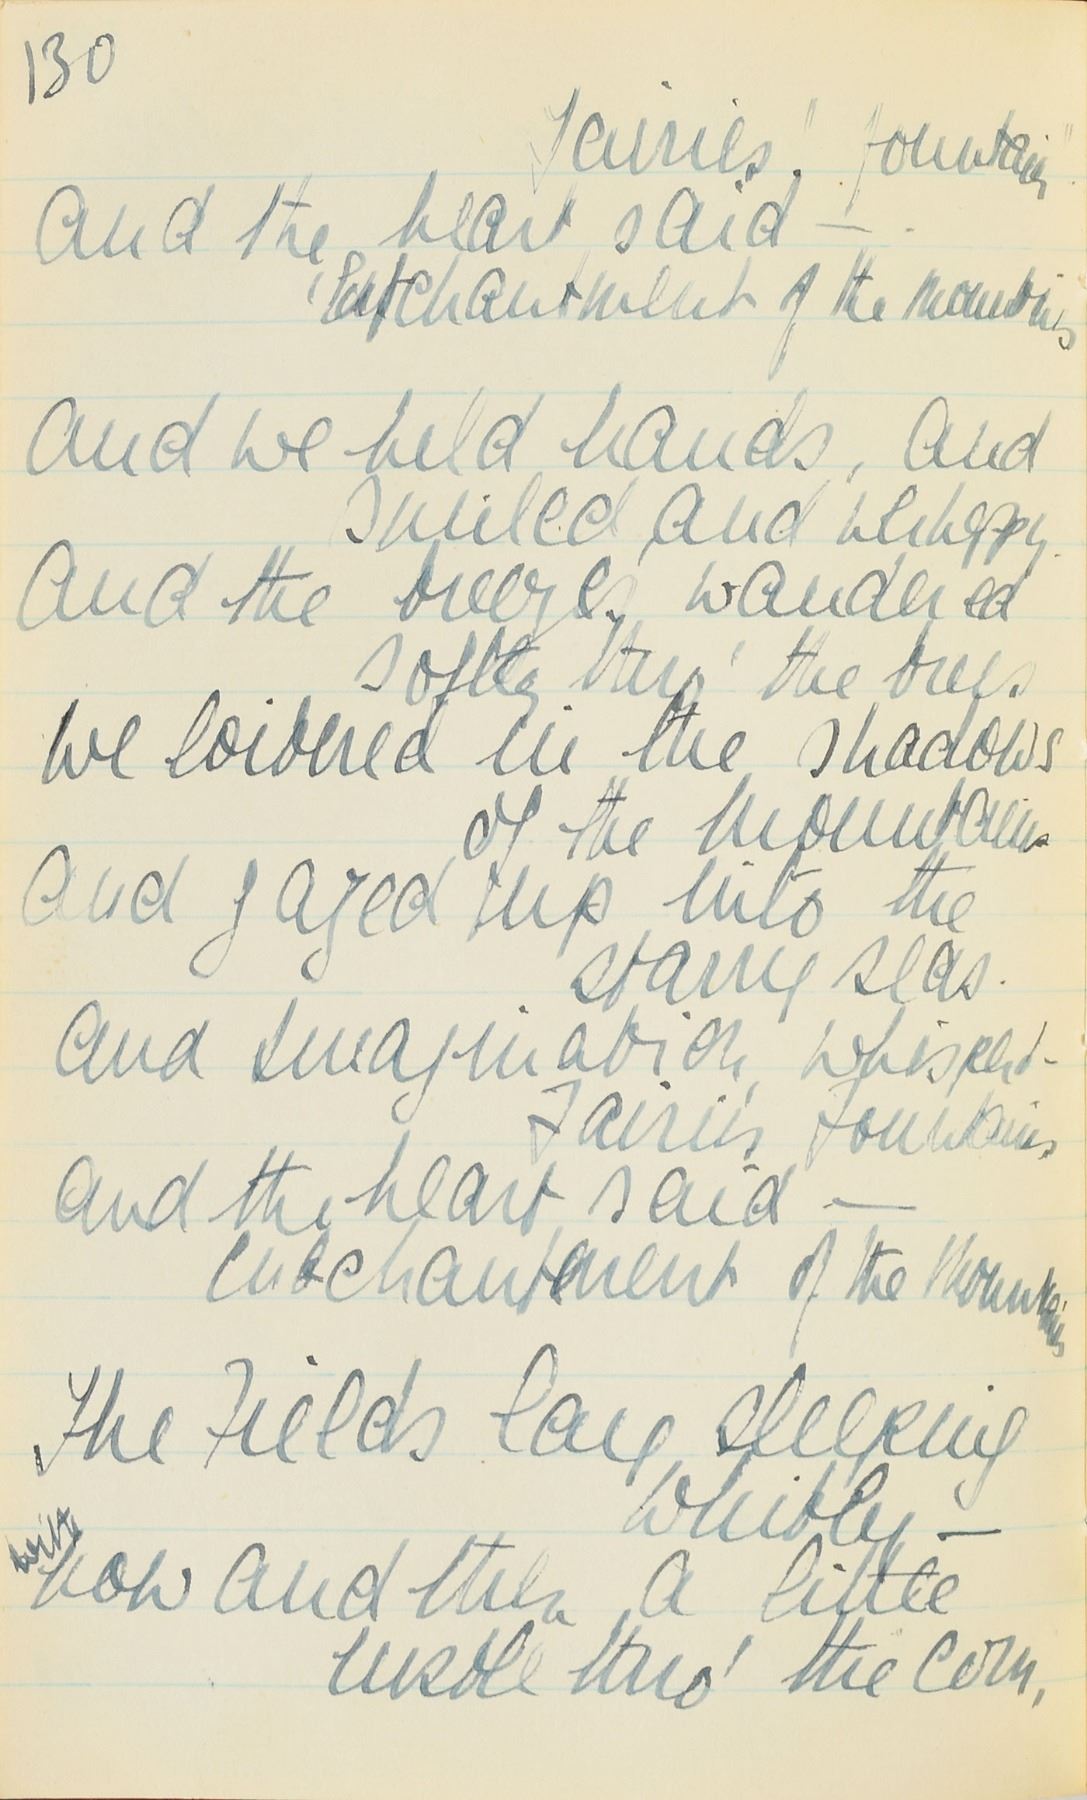 130
Fairies' fountains"
And the heart said —
'Enchantment of the mountains
And we held hands, and
smiled and were happy.
And the breezes wandered
softly thro' the trees
We loitered in the shadows
of the mountains
And gazed up into the
starry seas.
And Imagination whispered -
Fairies Fountains
And the heart said —
Enchantment of the Mountains
The Fields lay sleeping
whitely —
with
now and then a little
rustle thro' the corn,